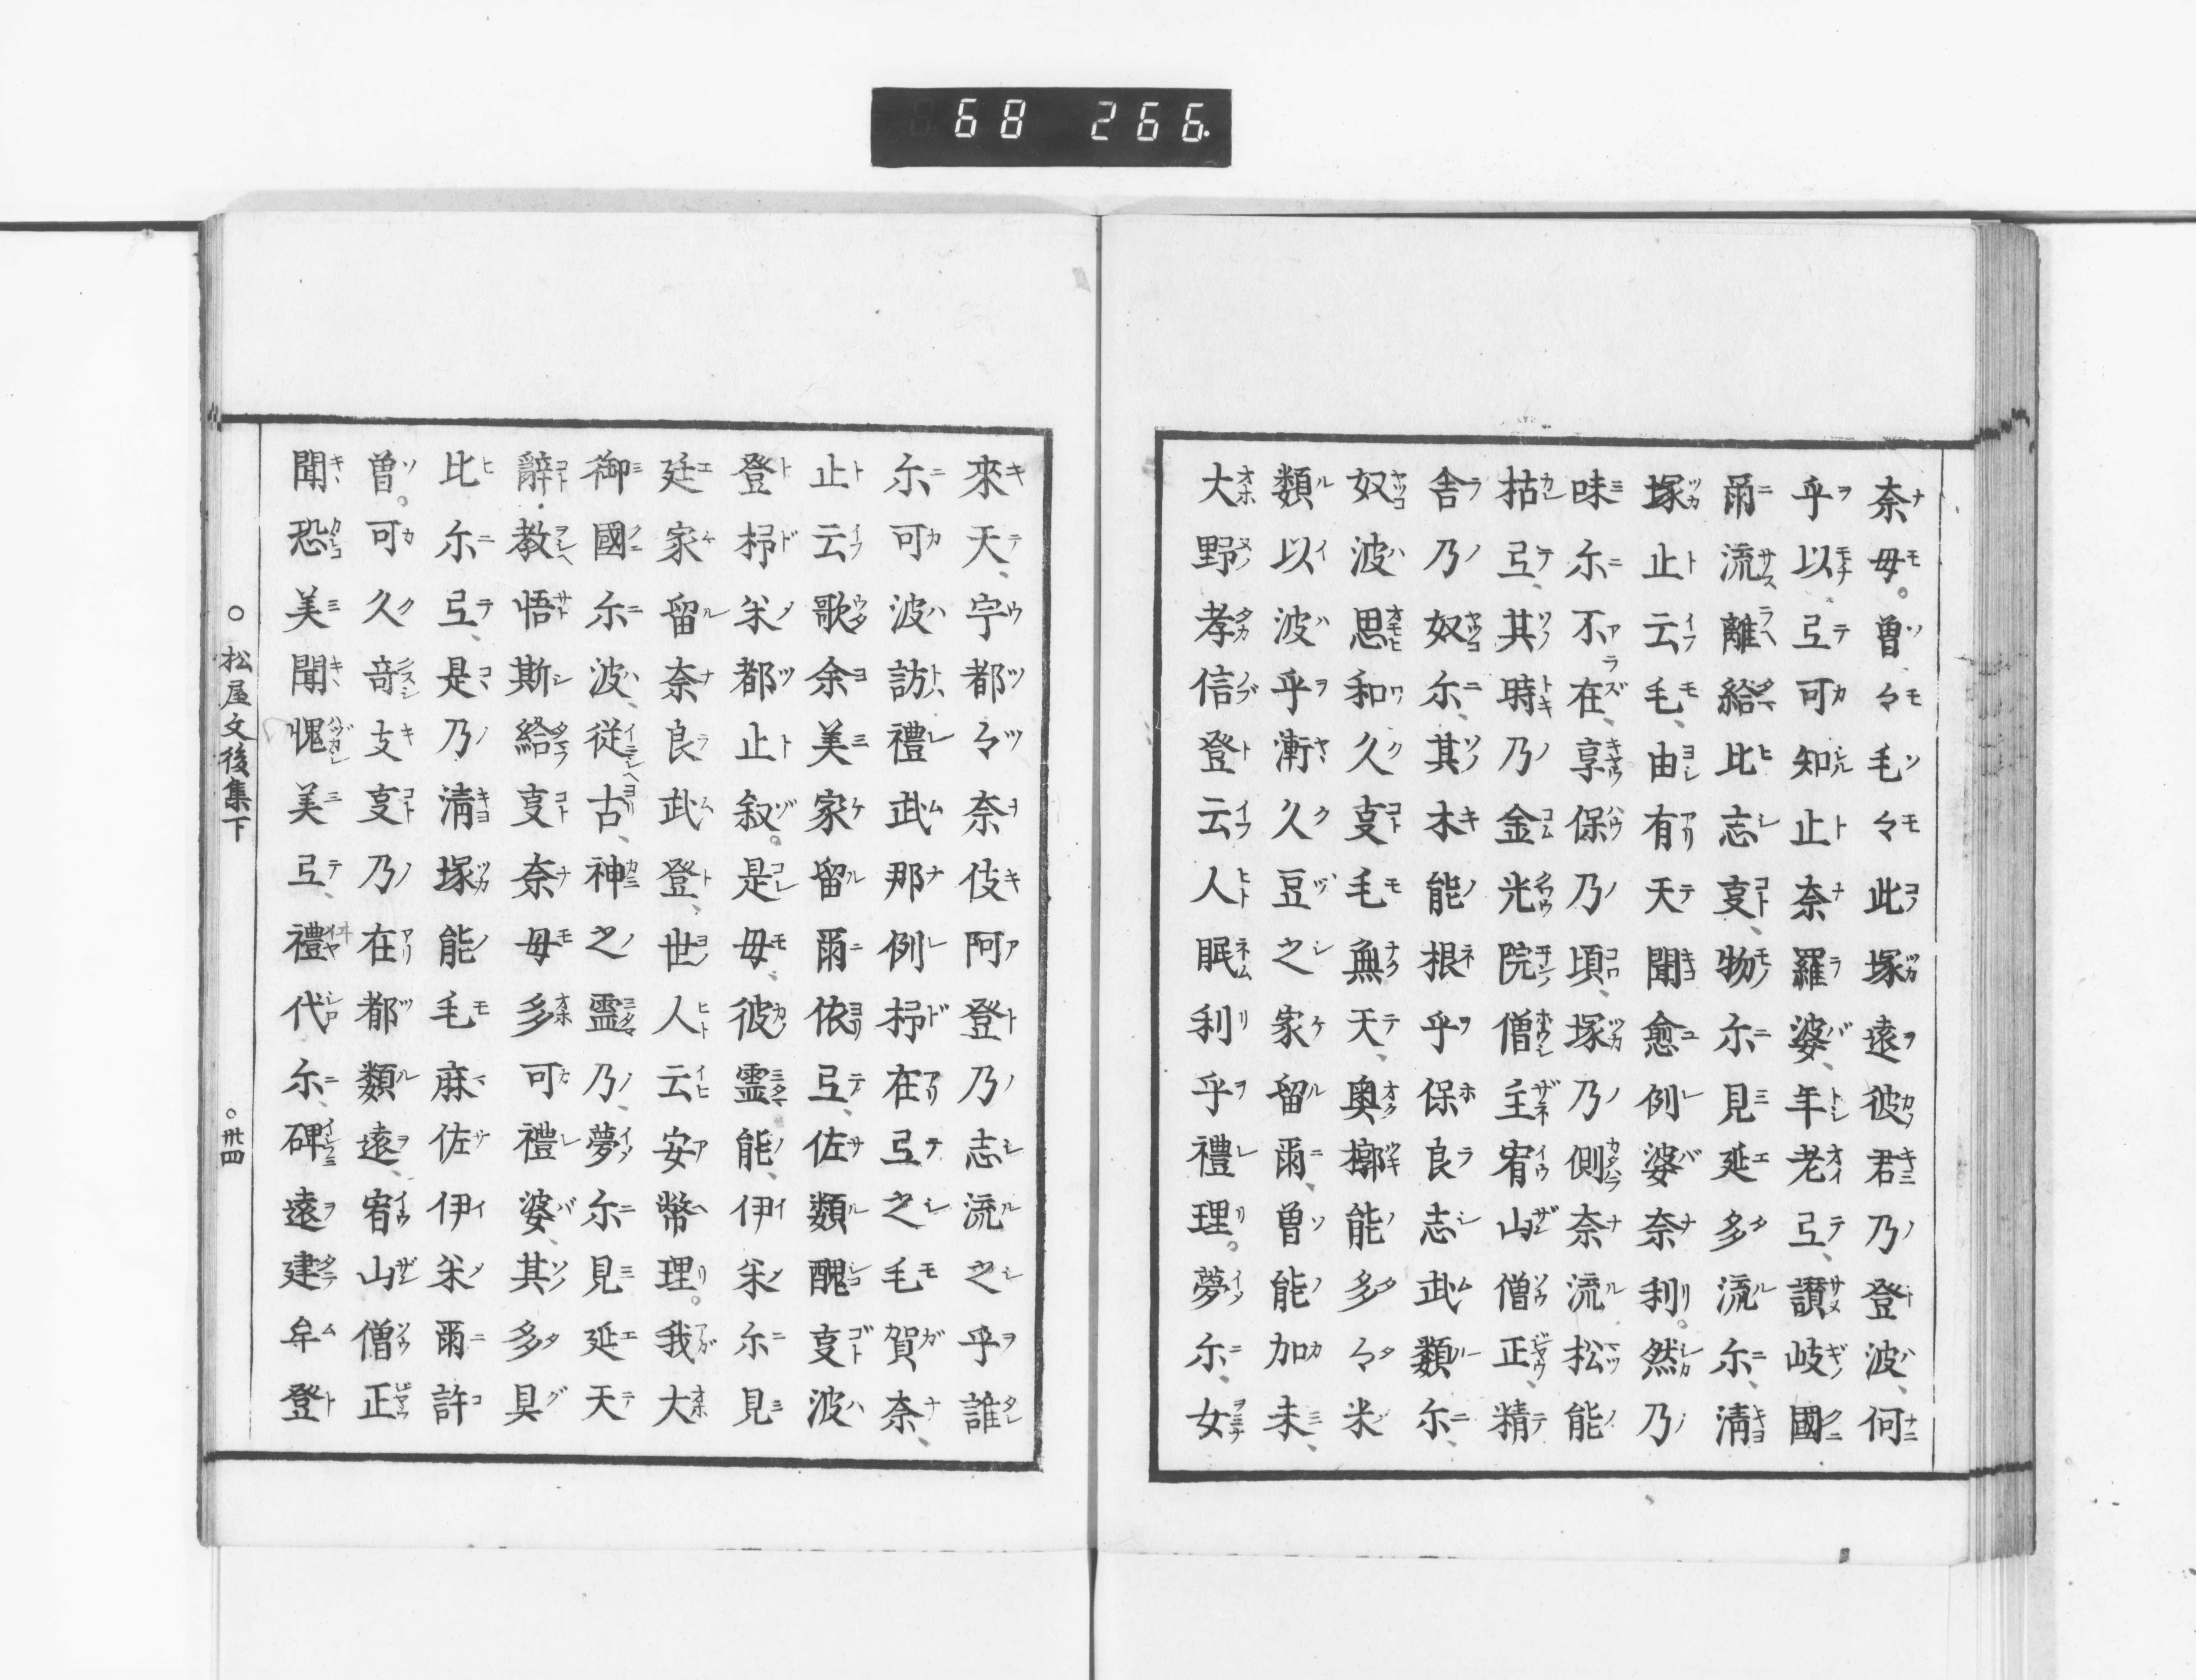 68 266.
奈毋。曽々毛々此塚遠彼君乃登波、何
乎以弖可知止奈羅婆、年老弖、讃岐國
爾流離給比志㕝、物尓見延多流尓、淸
塚止云毛、由有天聞愈例婆奈利。然乃
味尓不在、享保乃頃、塚乃側奈流松能
枯弖、其時乃金光院僧主宥山僧正、精
舎乃奴尓、其木能根乎保良志武類尓、
奴波思和久㕝毛無天、奥槨能多々米
類以波乎漸久豆之家留爾、曽能加未、
大野孝信登云人眠利乎禮理。夢尓、女
來天、宇都々奈伎阿登乃志流之乎誰
尓可波訪禮武那例抔在弖之毛賀奈、
止云歌余美家留爾依弖、佐類醜㕝波
登抔米都止叙。是毋、彼霊能、伊米尓見
延家留奈良武登、世人云安幣理。我大
御國尓波、従古、神之霊乃、夢尓見延天
辭教悟斯給㕝奈毋多可禮婆、其多具
比尓弖、是乃淸塚能毛麻佐伊米爾許
曽。可久竒支㕝乃在都類遠、宥山僧正
聞恐美聞愧美弖、禮代尓、碑遠建牟登
○松屋文後集下
○卅四